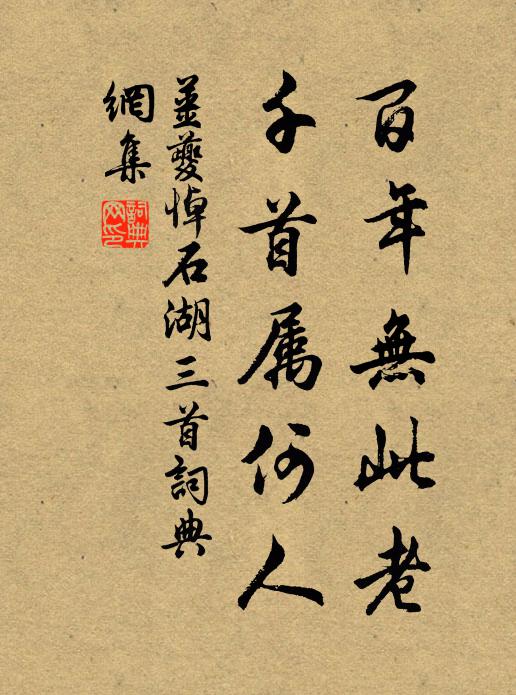 百年無此老
千首属何人
姜夔悼石湖三首詞典
網集
詞典
网印